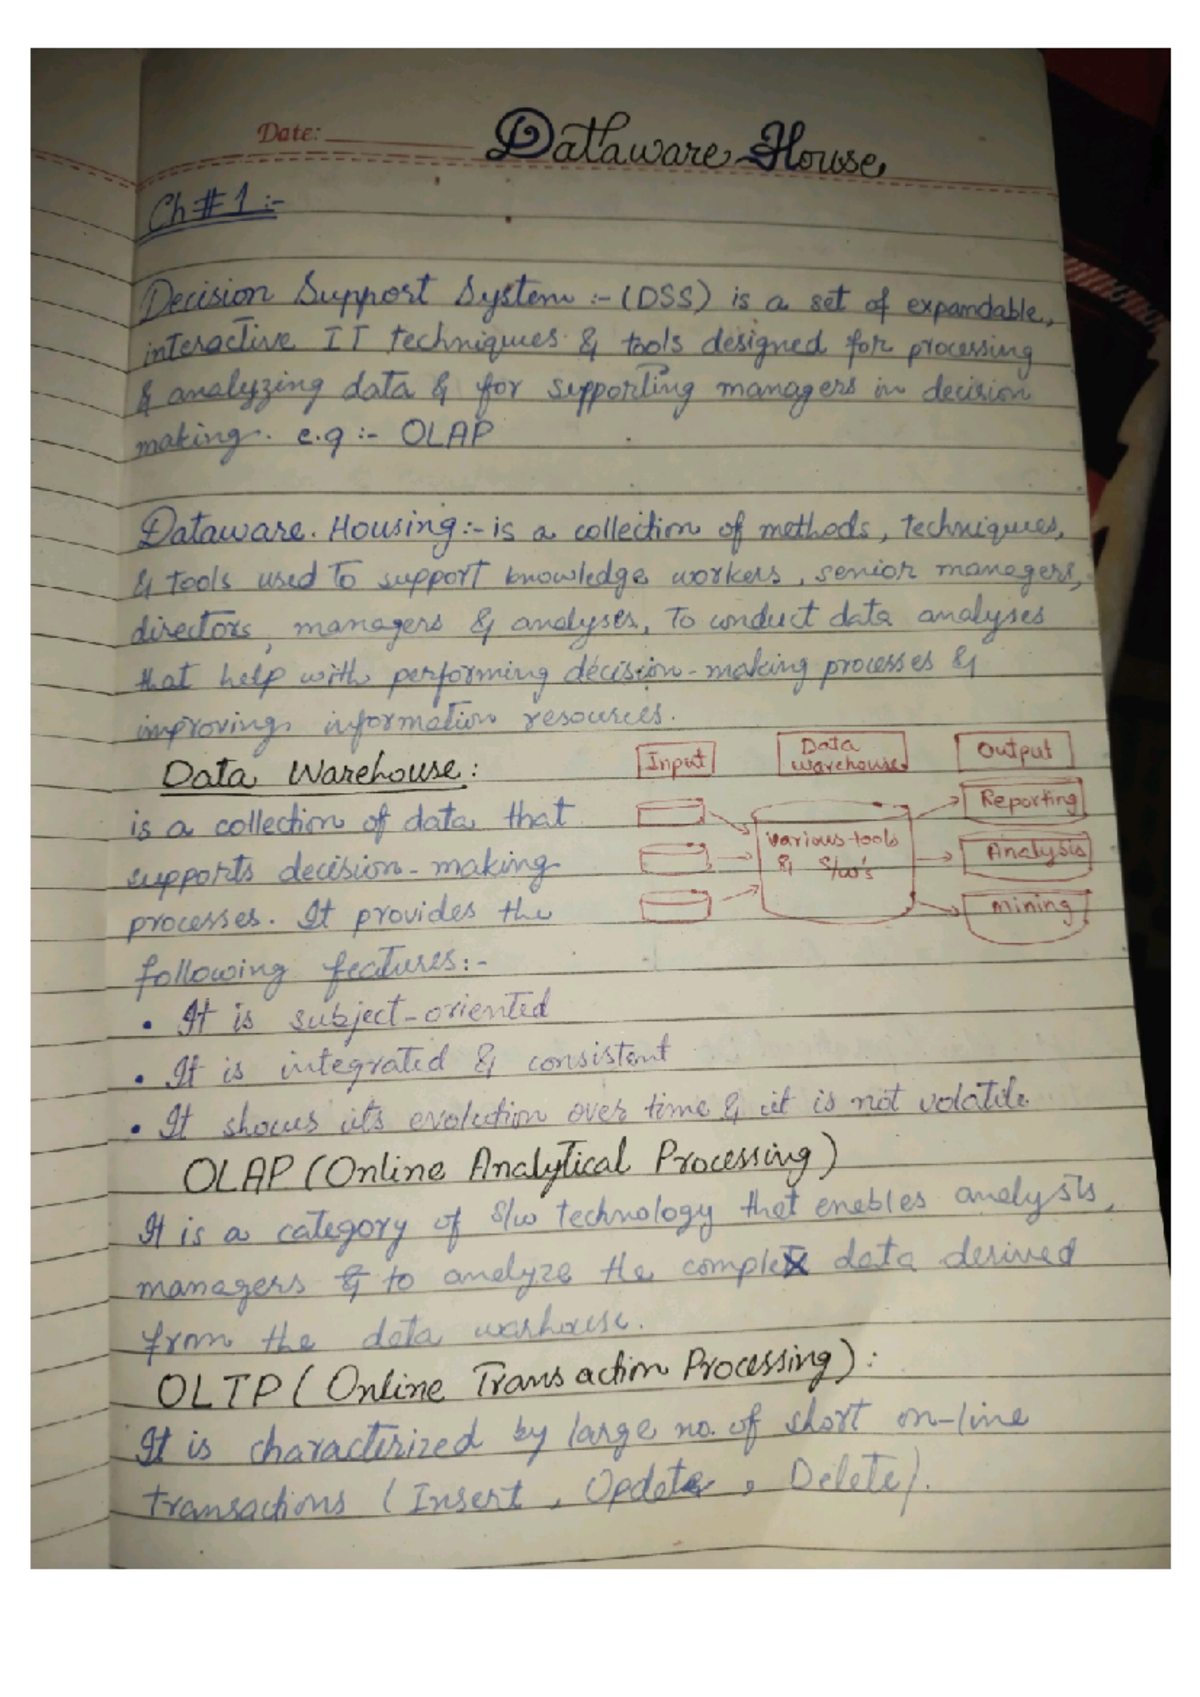 Date:
Dataware House
Ch#1:-
Decision Support System :- (DSS) is a set of expandable,
interactive IT techniques & tools designed for processing
& analyzing data & for supporting managers in decision
making. e.g :- OLAP
Dataware. Housing:- is a collection of methods, techniques,
& tools used to support knowledge workers, senior managers,
directors, managers & analyses, to conduct data analyses
that help with performing decision-making processes &
improving information resources.
Data Warehouse:
is a collection of data that
supports decision-making
processes. It provides the
following features:-
Input
Data
warehouse
Output
various tools
& s/w's
Reporting
Analysis
mining
• It is subject-oriented
• It is integrated & consistent
• It shows its evolution over time & it is not volatile
OLAP (Online Analytical Processing)
It is a category of s/w technology that enables analysts,
managers & to analyze the complex data derived
from the data warhouse.
OLTP (Online Transaction Processing):
It is characterized by large no. of short on-line
transactions (Insert, Update, Delete).